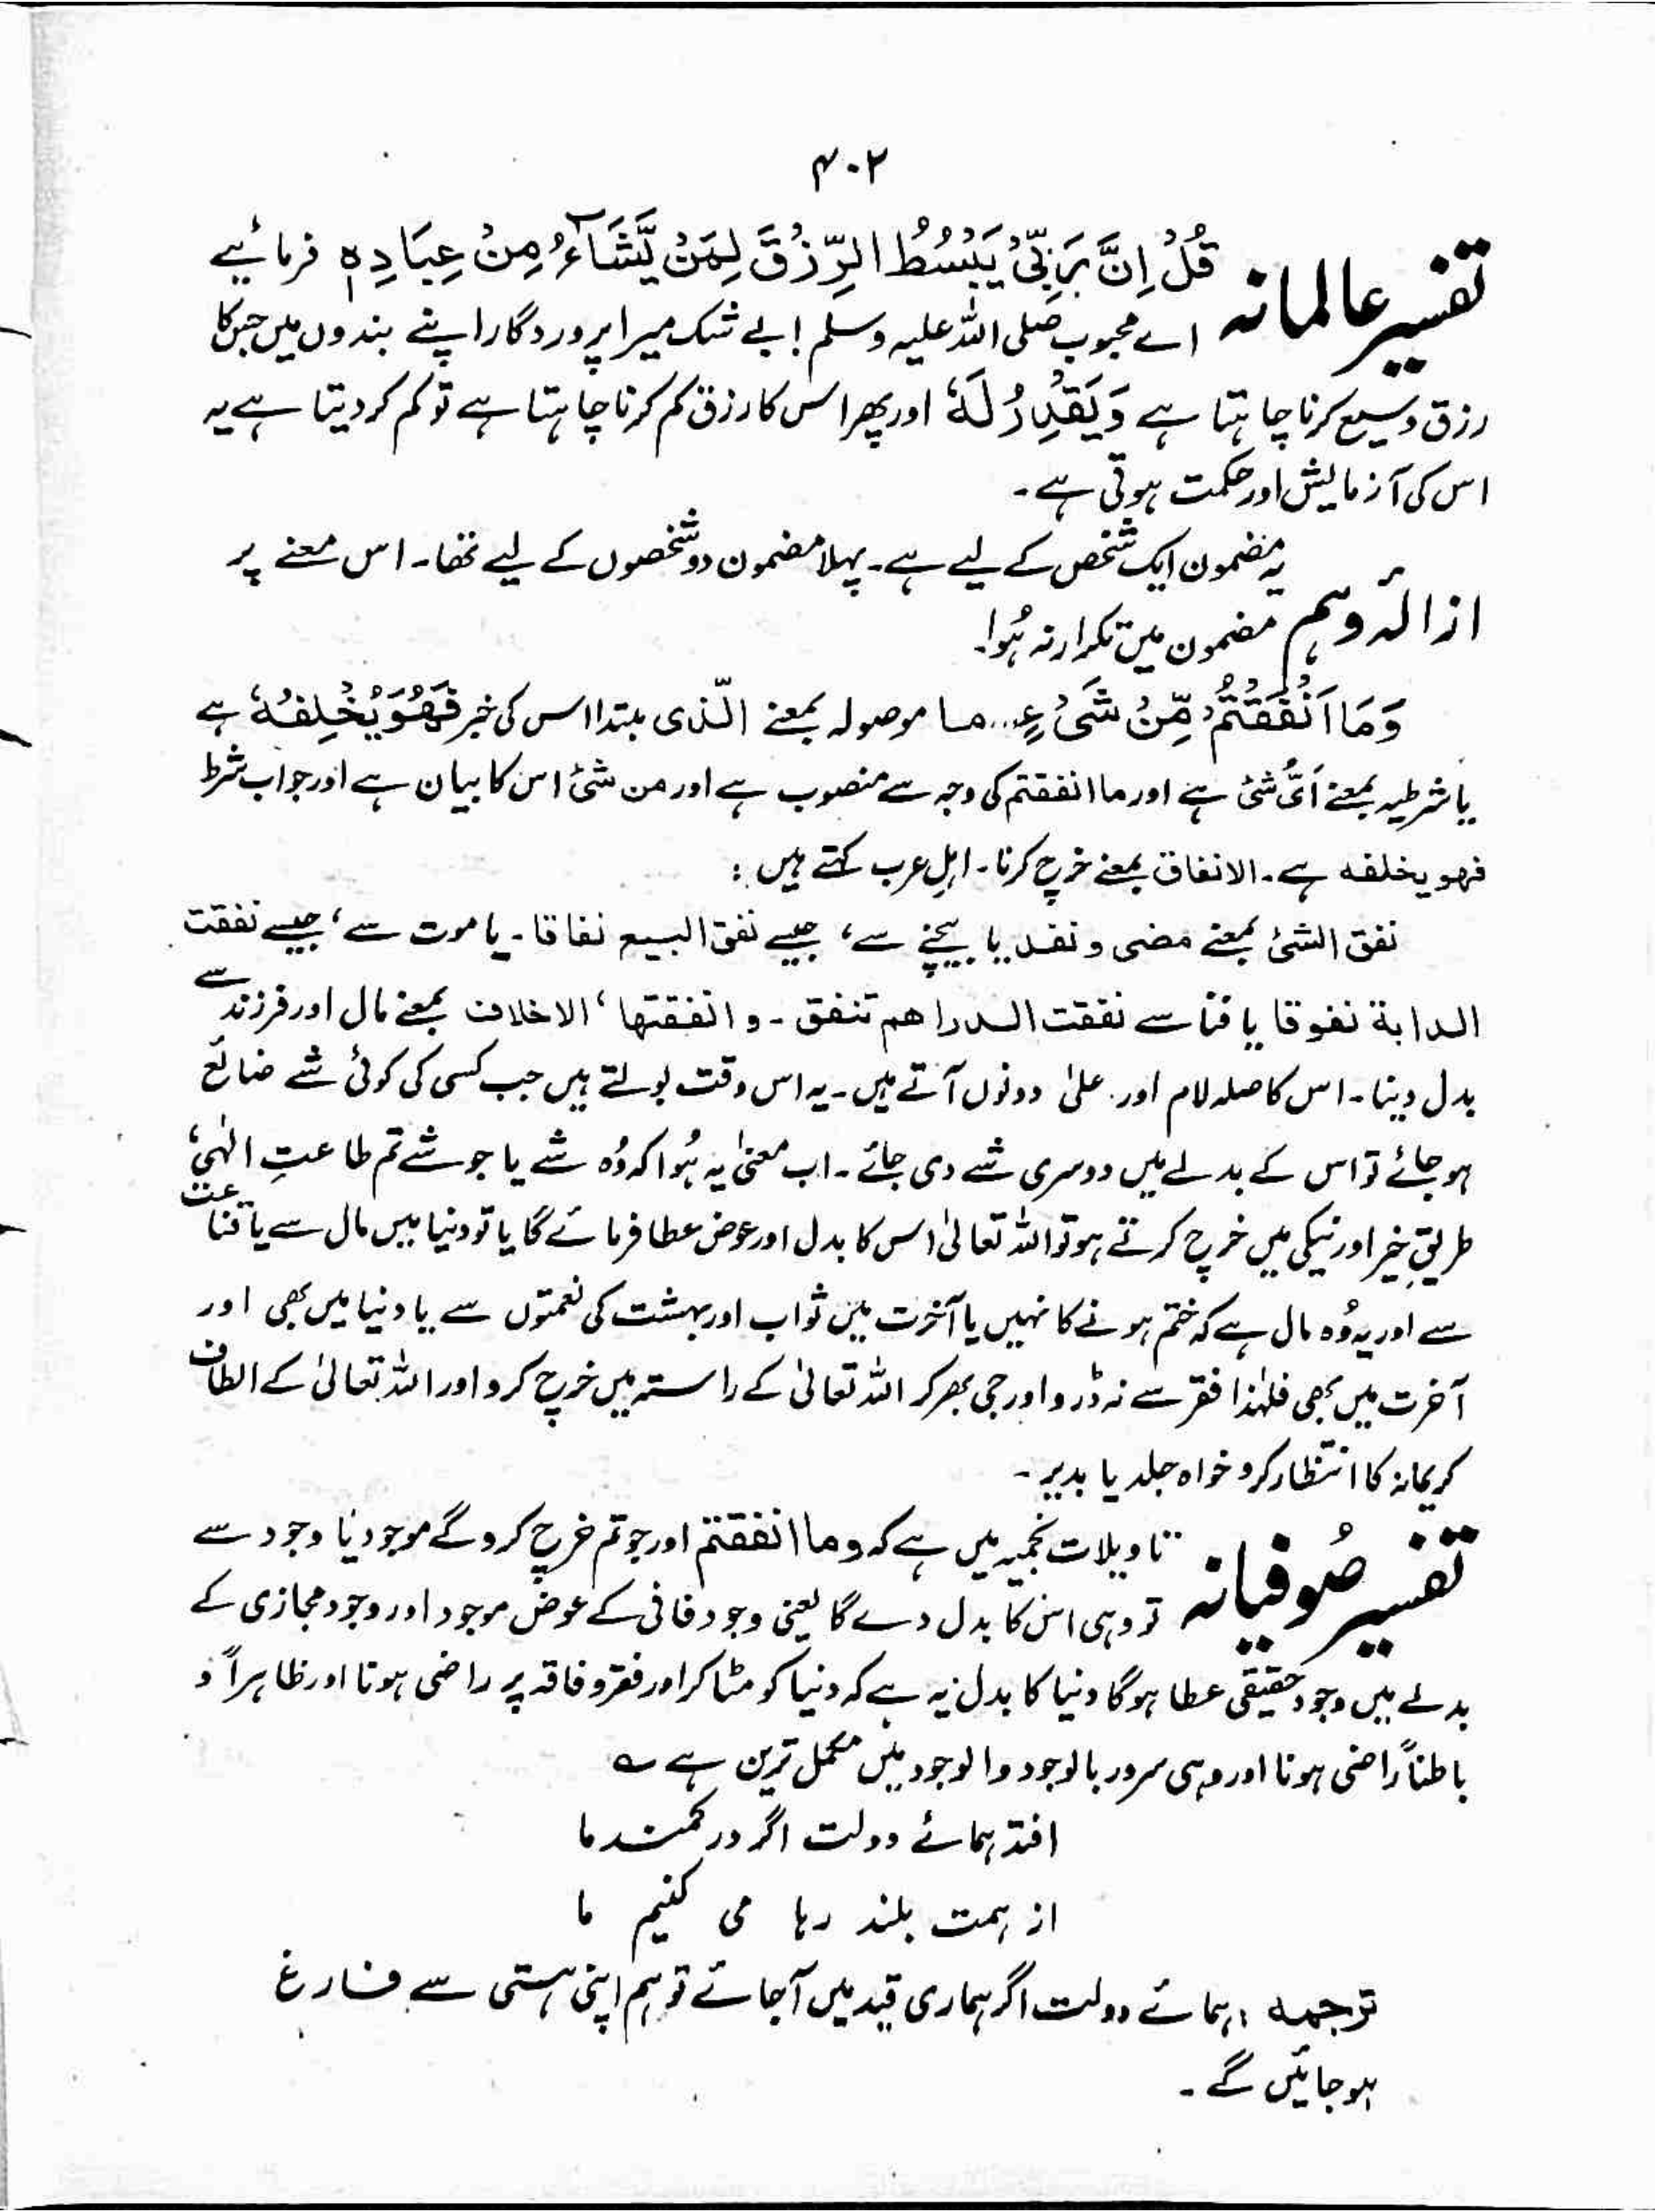 ۴۰۲
تفسیر عالمانہ قُلْ اِنَّ رَبِّیْ یَبْسُطُ الرِّزْقَ لِمَنْ یَّشَآءُ مِنْ عِبَادِہٖ فرمائیے
اے محبوب صلی اللہ علیہ وسلم! بے شک میرا پروردگار اپنے بندوں میں جس کا
رزق وسیع کرنا چاہتا ہے وَیَقْدِرُ لَہٗ اور پھر اس کا رزق کم کرنا چاہتا ہے تو کم کر دیتا ہے یہ
اس کی آزمایش اور حکمت ہوتی ہے۔
یہ مضمون ایک شخص کے لیے ہے۔ پہلا مضمون دو شخصوں کے لیے تھا۔ اس معنے پر
ازالۂ وہم مضمون میں تکرار نہ ہُوا۔
وَمَا اَنْفَقْتُمْ مِّنْ شَیْءٍ... ما موصولہ بمعنے الّذی مبتدا اس کی خبر فَھُوَ یُخْلِفُہٗ ہے
یا شرطیہ بمعنے اَیُّ شئ ہے اور ما انفقتم کی وجہ سے منصوب ہے اور من شئ اس کا بیان ہے اور جواب شرط
فھو یخلفہ ہے۔ الانفاق بمعنے خرچ کرنا۔ اہلِ عرب کہتے ہیں:
نفق الشئ بمعنے مضی و نفد یا بیچنے سے، جیسے نفق البیع نفاقا۔ یا موت سے، جیسے نفقت
الدابۃ نفوقا یا فنا سے نفقت الدراھم تنفق۔ و انفقتھا، الاخلاف بمعنے مال اور فرزند سے
بدل دینا۔ اس کا صلہ لام اور علیٰ دونوں آتے ہیں۔ یہ اس وقت بولتے ہیں جب کسی کی کوئی شے ضائع
ہو جائے تو اس کے بدلے میں دوسری شے دی جائے۔ اب معنیٰ یہ ہُوا کہ وُہ شے یا جو شے تم طاعتِ الٰہی،
طریقِ خیر اور نیکی میں خرچ کرتے ہو تو اللہ تعالیٰ اس کا بدل اور عوض عطا فرمائے گا یا تو دنیا میں مال سے یا قناعت
سے اور یہ وُہ مال ہے کہ ختم ہونے کا نہیں یا آخرت میں ثواب اور بہشت کی نعمتوں سے یا دنیا میں بھی اور
آخرت میں بھی فلہٰذا فقر سے نہ ڈرو اور جی بھر کر اللہ تعالیٰ کے راستہ میں خرچ کرو اور اللہ تعالیٰ کے الطاف
کریمانہ کا انتظار کرو خواہ جلد یا بدیر۔
تفسیر صُوفیانہ تاویلات نجمیہ میں ہے کہ وما انفقتم اور جو تم خرچ کرو گے موجود یا وجود سے
تو وہی اس کا بدل دے گا یعنی وجود فانی کے عوض موجود اور وجود مجازی کے
بدلے میں وجود حقیقی عطا ہوگا دنیا کا بدل یہ ہے کہ دنیا کو مٹا کر اور فقر و فاقہ پر راضی ہونا اور ظاہراً و
باطناً راضی ہونا اور وہی سرور بالوجود والوجود میں مکمل ترین ہے ؎
افتد ہمائے دولت اگر در کمند ما
از ہمت بلند رہا می کنیم ما
ترجمہ : ہمائے دولت اگر ہماری قید میں آجائے تو ہم اپنی ہستی سے فارغ
ہو جائیں گے۔